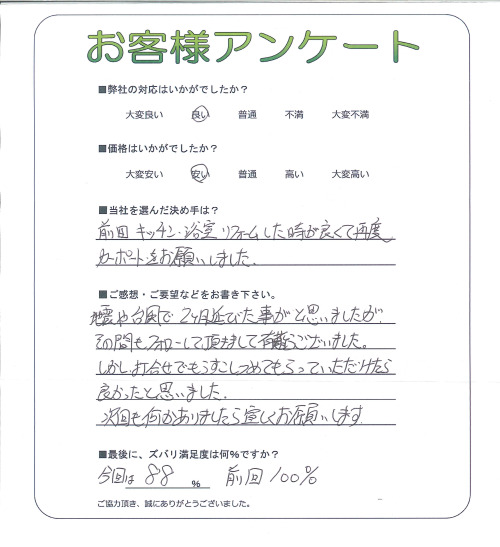 お客様アンケート
■弊社の対応はいかがでしたか？
大変良い 良い 普通 不満 大変不満
■価格はいかがでしたか？
大変安い 安い 普通 高い 大変高い
■当社を選んだ決め手は？
前回 キッチン・浴室 リフォームした時が良くて再度
カーポートをお願いしました.
■ご感想・ご要望などをお書き下さい。
地震や台風で 2ヶ月延びた事がと思いましたが、
その間もフォローして頂きまして有難うございました。
しかし打合せでもう少しつめてもらっていただけたら
良かったと思いました.
次回も何かありましたら宜しくお願いします
■最後に、ズバリ満足度は何％ですか？
今回は 88 % 前回 100%
ご協力頂き、誠にありがとうございました。